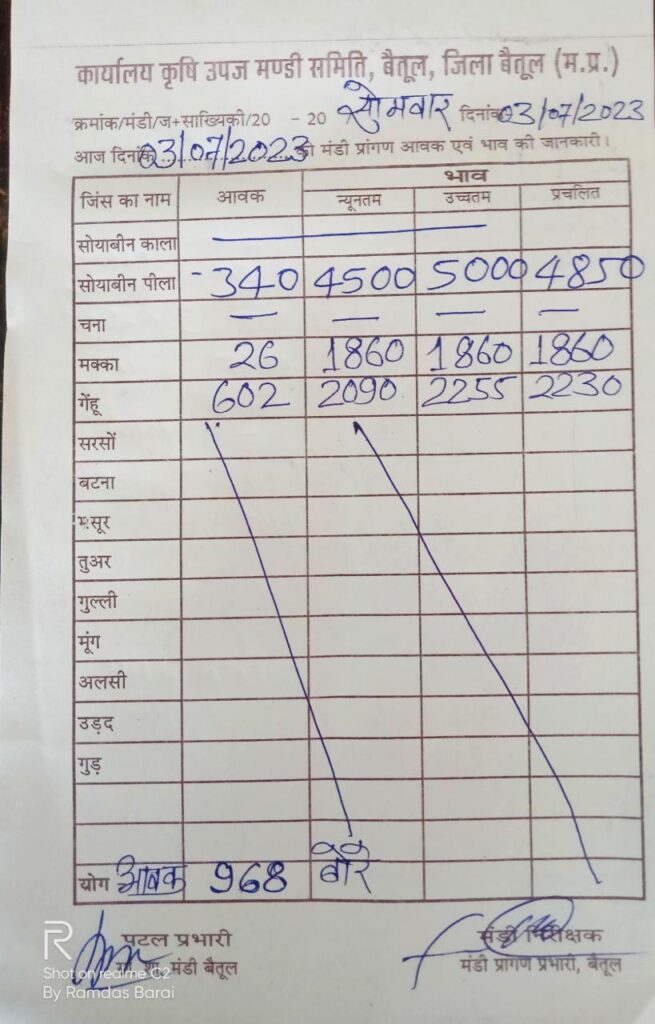 कार्यालय कृषि उपज मण्डी समिति, बैतूल, जिला बैतूल (म.प्र.)
क्रमांक/मंडी/ज+साख्यिकी/20 - 20 सोमवार दिनांक 03/07/2023
आज दिनांक 03/07/2023 को मंडी प्रांगण आवक एवं भाव की जानकारी।
जिंस का नाम आवक भाव
न्यूनतम उच्चतम प्रचलित
सोयाबीन काला —
सोयाबीन पीला -340 4500 5000 4850
चना — — — —
मक्का 26 1860 1860 1860
गेंहू 602 2090 2255 2230
सरसों
बटना
मसूर
तुअर
गुल्ली
मूंग
अलसी
उड़द
गुड़
योग आवक 968 बोरे
पटल प्रभारी
मंडी बैतूल
मंडी निरीक्षक
मंडी प्रागण प्रभारी, बैतूल
R
Shot on realme C2
By Ramdas Barai